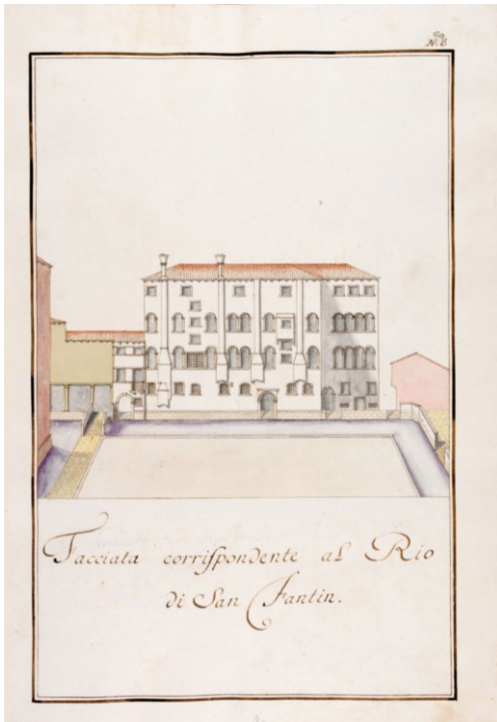 N.º 6
Facciata corriſpondente al Rio
di San Fantin.